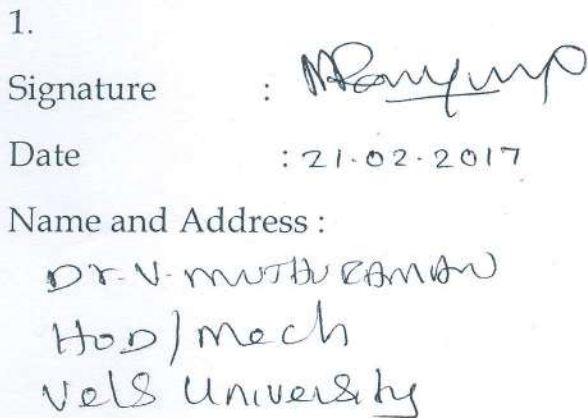 1.
Signature :
Date : 21.02.2017
Name and Address :
Dr. V. MUTHURAMAN
HOD/Mech
Vels University